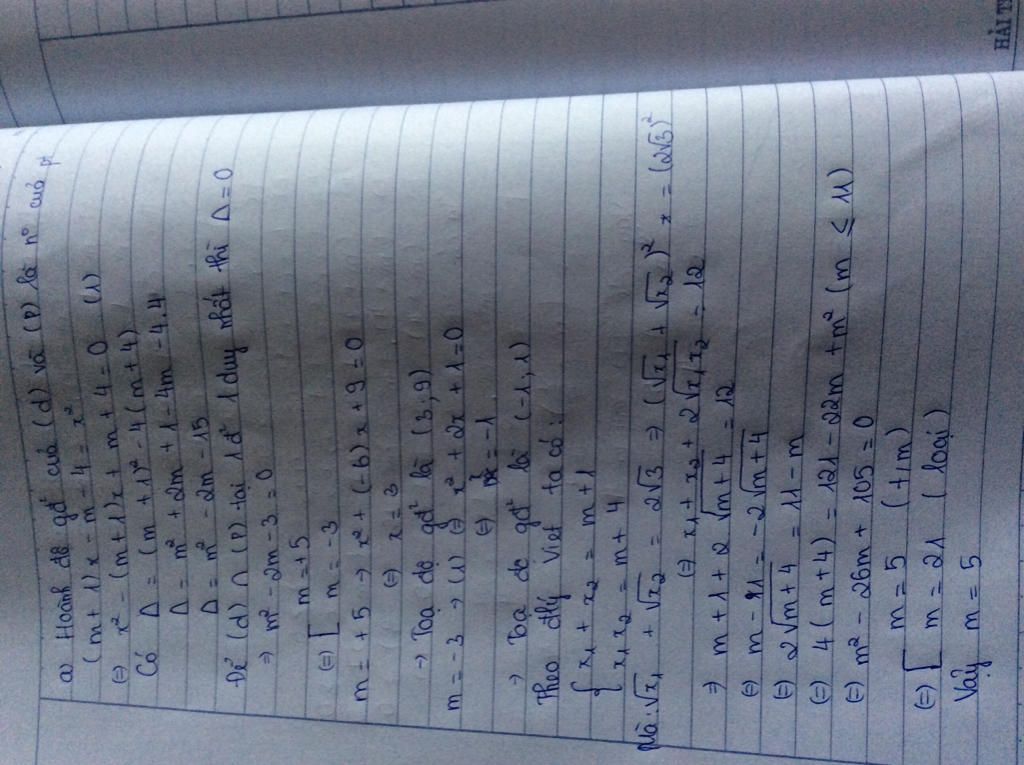 a) Hoành độ gđ² của (d) và (P) là n° của pt
(m+1)x - m - 4 = x²
(=) x² - (m+1)x + m + 4 = 0 (1)
Có Δ = (m+1)² - 4(m+4)
Δ = m² + 2m + 1 - 4m - 4.4
Δ = m² - 2m - 15
Để (d) ∩ (P) tại 1 đ² 1 duy nhất thì Δ = 0
⇒ m² - 2m - 3 = 0
(=) [ m = +5
m = -3
m = +5 → x² + (-6)x + 9 = 0
(=) x = 3
→ Toạ độ gđ² là (3,9)
m = -3 → (1) (=) x² + 2x + 1 = 0
(=) x = -1
→ Toạ độ gđ² là (-1,1)
Theo đlý Viet ta có:
{ x₁ + x₂ = m + 1
x₁x₂ = m + 4
Mà: √x₁ + √x₂ = 2√3 ⇒ (√x₁ + √x₂)² = (2√3)²
(=) x₁ + x₂ + 2√x₁x₂ = 12
⇒ m + 1 + 2√m+4 = 12
(=) m - 11 = -2√m+4
(=) 2√m+4 = 11 - m
(=) 4(m+4) = 121 - 22m + m² (m ≤ 11)
(=) m² - 26m + 105 = 0
(=) [ m = 5 (t/m)
m = 21 (loại)
Vậy m = 5
HẢI T